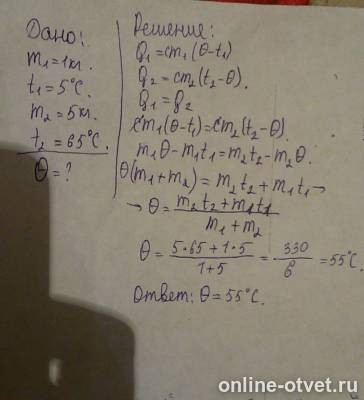 Дано:
m₁=1кг.
t₁=5°C
m₂=5кг.
t₂=65°C.
θ=?
Решение:
q₁=cm₁(θ-t₁)
q₂=cm₂(t₂-θ).
q₁=q₂
cm₁(θ-t₁)=cm₂(t₂-θ).
m₁θ-m₁t₁=m₂t₂-m₂θ.
θ(m₁+m₂)=m₂t₂+m₁t₁→
→θ=(m₂t₂+m₁t₁)/(m₁+m₂)
θ=(5·65+1·5)/(1+5)=330/6=55°C.
Ответ: θ=55°C.
online-otvet.ru